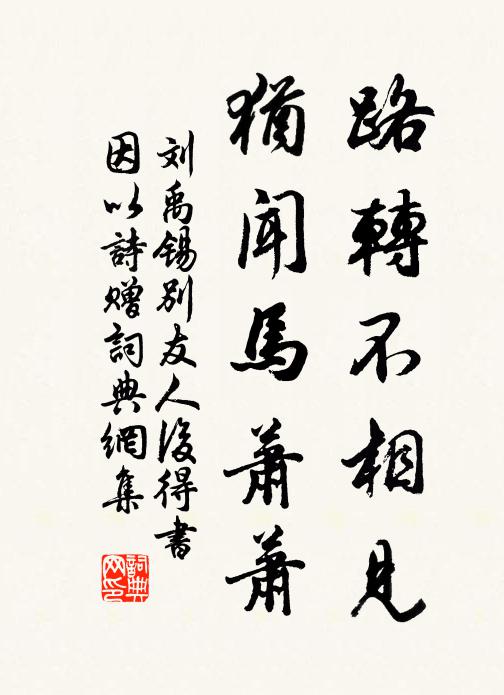 路轉不相見
猶聞馬蕭蕭
刘禹锡别友人後得書
因以詩赠詞典網集
詞典
网印